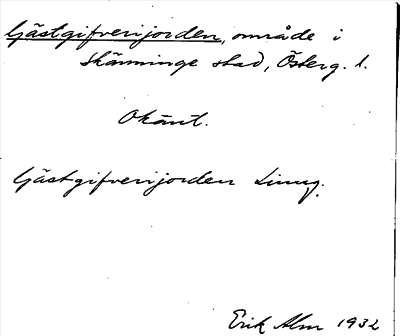 Gästgifverijorden, område i
Skänninge stad, Österg. l.
Okänt.
Gästgifverijorden
Erik Alm 1932